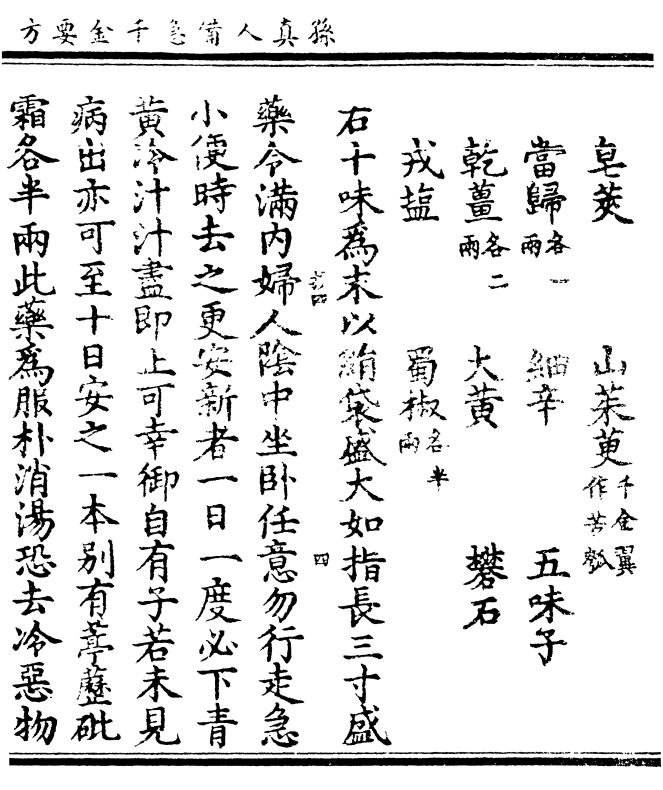 孫真人備急千金要方
皂莢 山茱萸千金翼作苦瓠
當歸各一兩 細辛 五味子
乾薑各二兩 大黃 礬石
戎塩 蜀椒各半兩
右十味為末以絹袋盛大如指長三寸盛
藥令滿內婦人陰中坐卧任意勿行走急
小便時去之更安新者一日一度必下青
黃冷汁汁盡即止可幸御自有子若未見
病出亦可至十日安之一本別有葶藶砒
霜各半兩此藥為服朴消湯恐去冷惡物
四